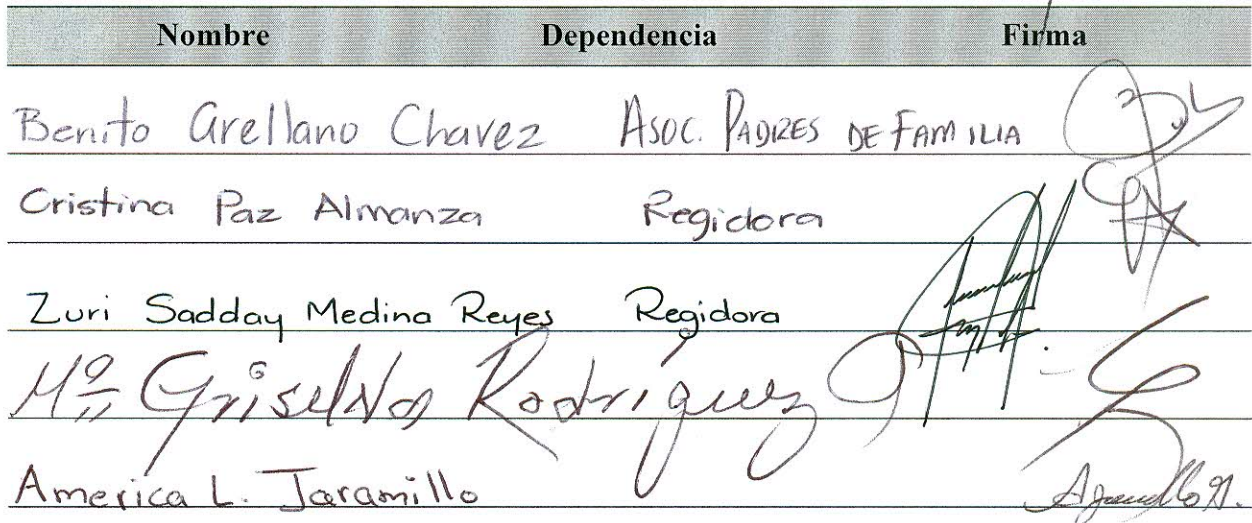 Nombre Dependencia Firma
Benito Arellano Chavez Asoc. PADRES DE FAMILIA
Cristina Paz Almanza Regidora
Zuri Sadday Medina Reyes Regidora
Mª Griselda Rodríguez
America L. Jaramillo